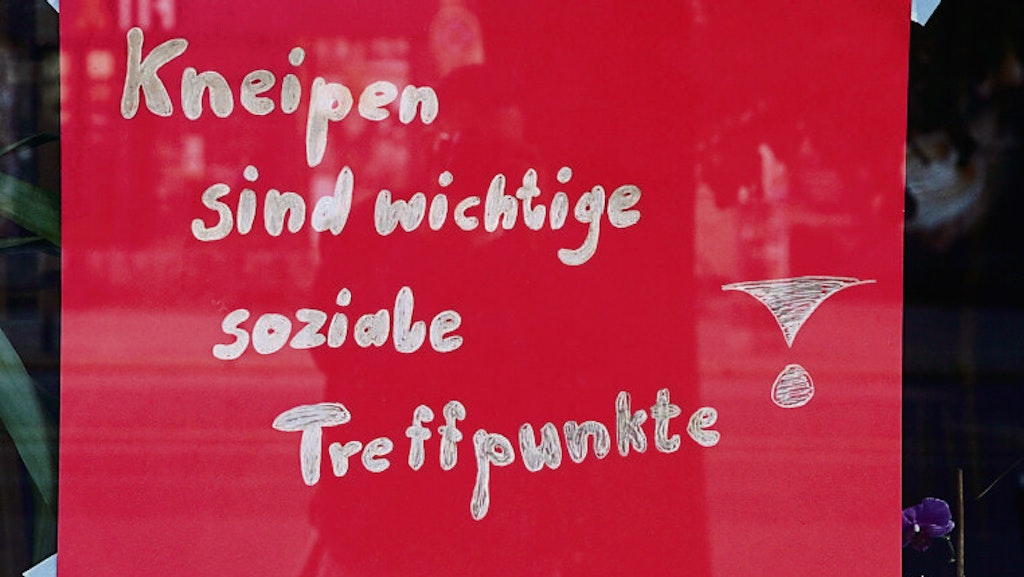 Kneipen
sind wichtige
soziale
Treffpunkte!